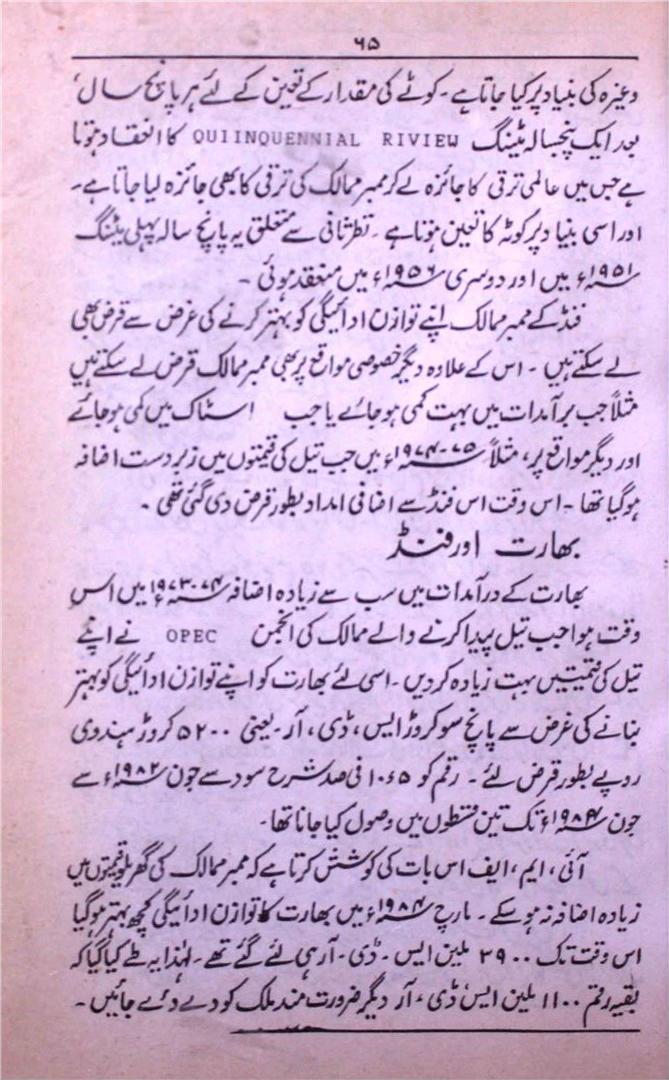 ۶۵
وغیرہ کی بنیاد پر کیا جاتا ہے۔ کوٹے کی مقدار کے تعین کے لئے ہر پانچ سال
بعد ایک پنجسالہ میٹنگ QUIINQUENNIAL RIVIEW کا انعقاد ہوتا
ہے جس میں عالمی ترقی کا جائزہ لے کر ممبر ممالک کی ترقی کا بھی جائزہ لیا جاتا ہے۔
اور اسی بنیاد پر کوٹہ کا تعین ہوتا ہے۔ نظرثانی سے متعلق یہ پانچ سالہ پہلی میٹنگ
۱۹۵۱ء میں اور دوسری ۱۹۵۶ء میں منعقد ہوئی۔
فنڈ کے ممبر ممالک اپنے توازن ادائیگی کو بہتر کرنے کی غرض سے قرض بھی
لے سکتے ہیں۔ اس کے علاوہ دیگر خصوصی مواقع پر بھی ممبر ممالک قرض لے سکتے ہیں
مثلاً جب برآمدات میں بہت کمی ہو جائے یا جب اسٹاک میں کمی ہو جائے
اور دیگر مواقع پر، مثلاً ۷۵-۱۹۷۴ء میں جب تیل کی قیمتوں میں زبردست اضافہ
ہو گیا تھا۔ اس وقت اس فنڈ سے اضافی امداد بطور قرض دی گئی تھی۔
بھارت اور فنڈ
بھارت کے درآمدات میں سب سے زیادہ اضافہ ۷۴-۱۹۷۳ء میں اس
وقت ہوا جب تیل پیدا کرنے والے ممالک کی انجمن OPEC نے اپنے
تیل کی قیمتیں بہت زیادہ کر دیں۔ اسی لئے بھارت کو اپنے توازن ادائیگی کو بہتر
بنانے کی غرض سے پانچ سو کروڑ ایس، ڈی، آر۔ یعنی ۵۲۰۰ کروڑ ہندوی
روپے بطور قرض لئے۔ رقم کو ۱۰۶۵ فی صد شرح سود سے جون ۱۹۸۲ء سے
جون ۱۹۸۴ء تک تین قسطوں میں وصول کیا جانا تھا۔
آئی، ایم، ایف اس بات کی کوشش کرتا ہے کہ ممبر ممالک کی گھریلو قیمتوں میں
زیادہ اضافہ نہ ہو سکے۔ مارچ ۱۹۸۴ء میں بھارت کا توازن ادائیگی کچھ بہتر ہو گیا
اس وقت تک ۳۹۰۰ ملین ایس۔ ڈی۔ آر ہی لئے گئے تھے۔ لہٰذا یہ طے کیا گیا کہ
بقیہ رقم ۱۱۰۰ ملین ایس ڈی، آر دیگر ضرورت مند ملک کو دے دئے جائیں۔